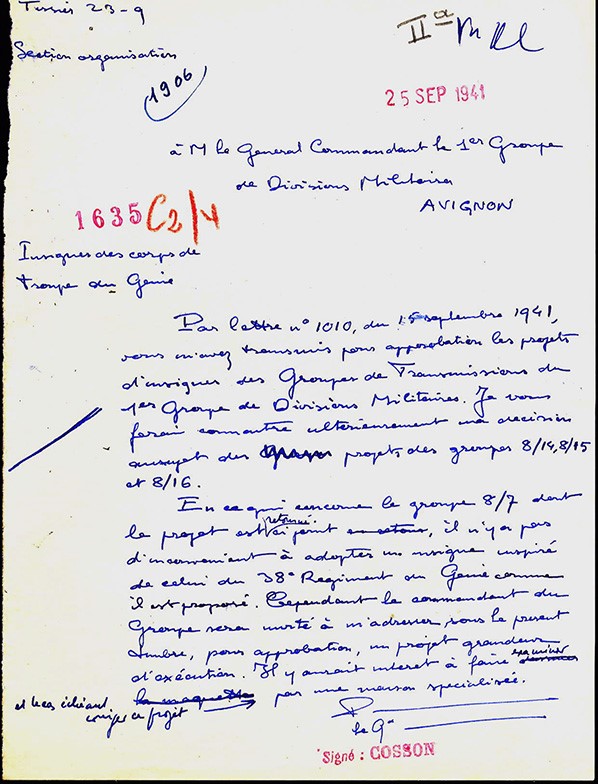 23-9
IIa
Section organisation
1906
25 SEP 1941
à M le General Commandant le 1er Groupe
de Divisions Militaires
AVIGNON
1635 C2/4
Insignes des corps de
troupe du Genie
Par lettre n° 1010, du 15 septembre 1941,
vous m'avez transmis pour approbation les projets
d'insignes des Groupes de Transmissions du
1er Groupe de Divisions Militaires. Je vous
ferai connaitre ulterieurement ma decision
au sujet des projets des groupes 8/14, 8/15
et 8/16.
En ce qui concerne le groupe 8/7 dont
le projet est retourné ci joint, il n'y a pas
d'inconvenient à adopter un insigne inspiré
de celui du 38e Regiment du Genie comme
il est proposé. Cependant le commandant du
Groupe sera invité à m'adresser, sous le present
timbre, pour approbation, un projet grandeur
d'exécution. Il y aurait interet à faire examiner
la maquette par une maison specialisée.
et le cas échéant,
corriger ce projet
le Gal
Signé : COSSON